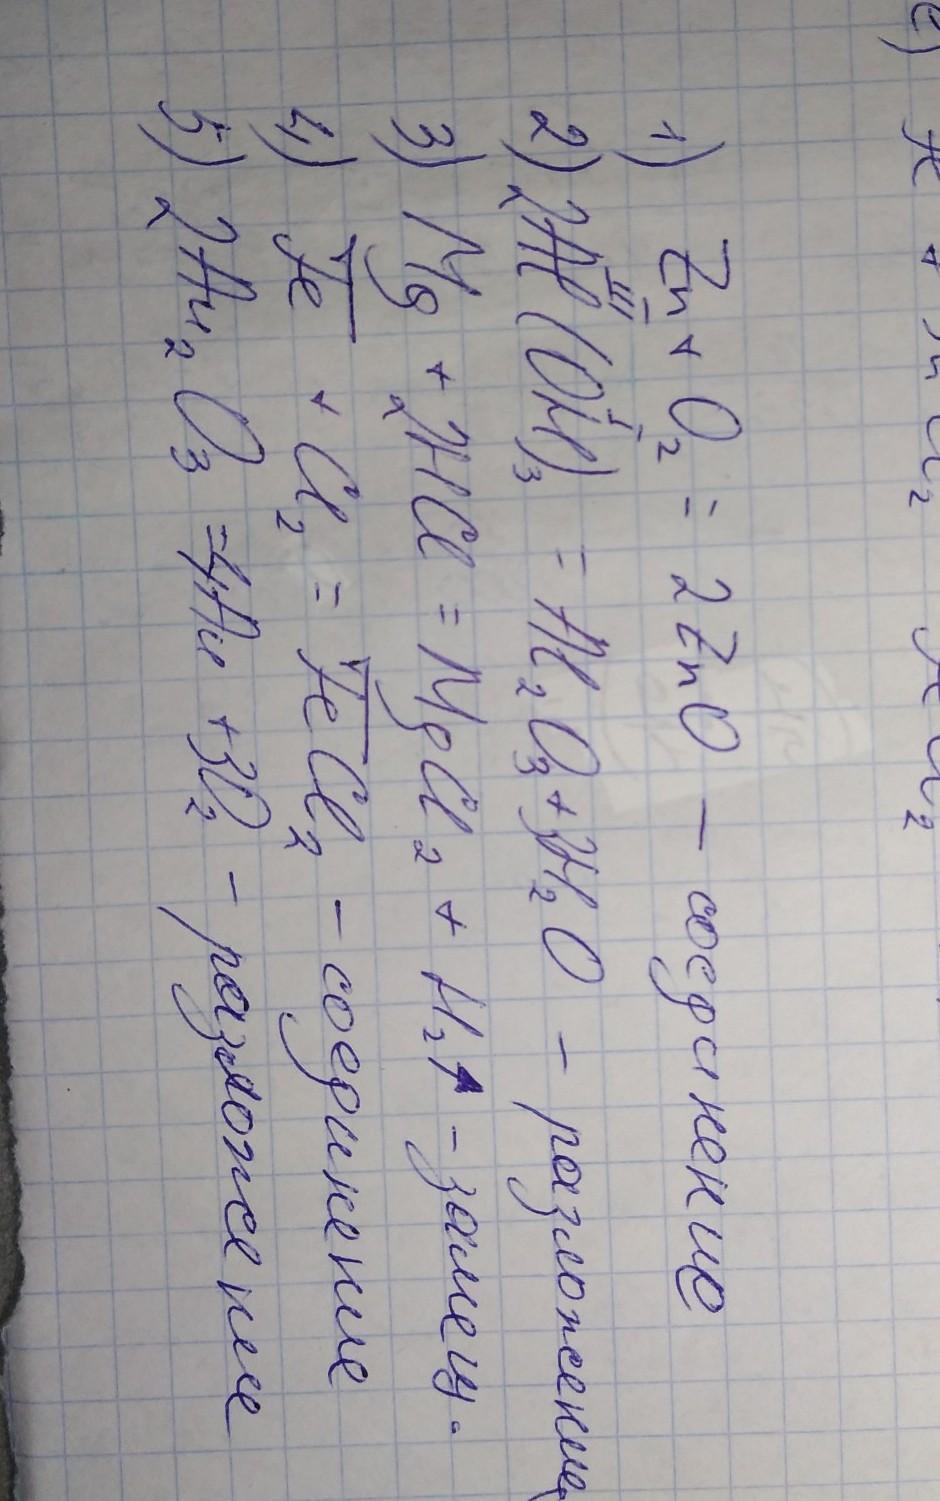 1) Zn + O₂ = 2ZnO — соединение
2) 2Al(OH)₃ = Al₂O₃ + 3H₂O – разложение
3) Mg + 2HCl = MgCl₂ + H₂↑ – замещ.
4) Fe + Cl₂ = FeCl₂ – соединение
5) 2Au₂O₃ = 4Au + 3O₂ – разложение